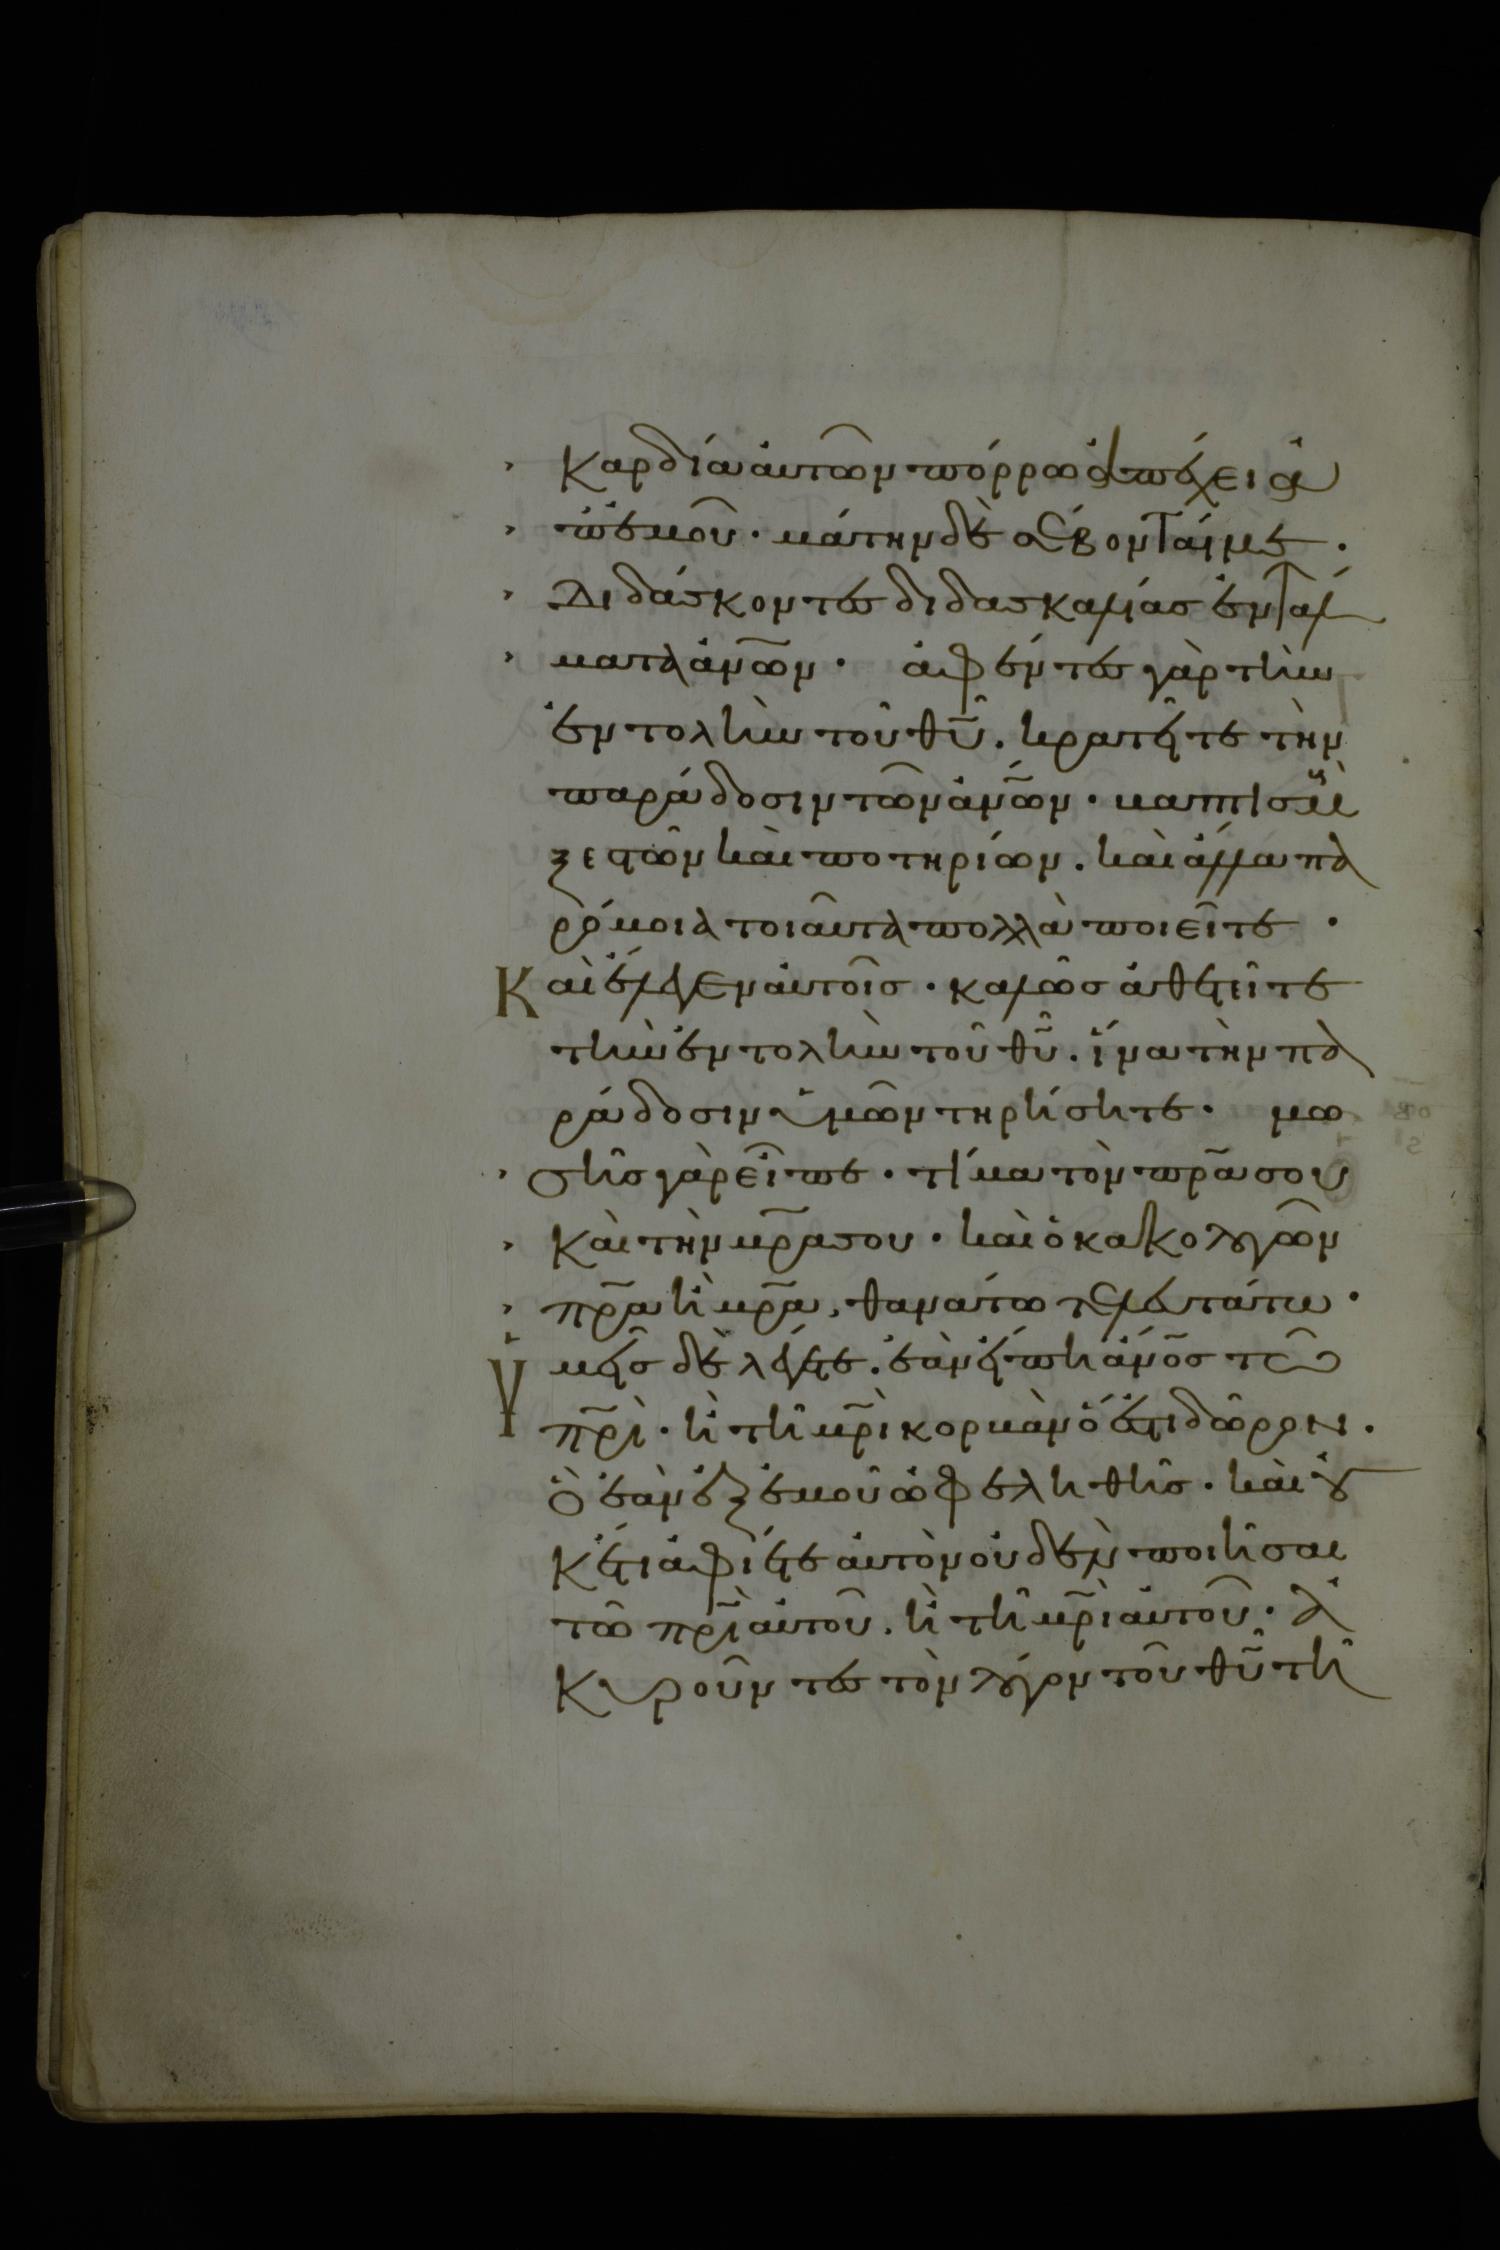 > καρδία αυτῶν πόρρω ἀπέχει ἀ
> π' ἐμοῦ· μάτην δὲ σέβονται με·
> Διδάσκοντες διδασκαλίας ἐνταλ
> ματα ἀν̅ων· ἀφέντες γὰρ τὴν
ἐντολὴν τοῦ θ̅υ̅. κρατεῖτε τὴν
παράδοσιν τῶν ἀν̅ων· βαπτισμοὺς
ξεστῶν καὶ ποτηρίων. καὶ ἄλλα πα
ρόμοια τοιαῦτα πολλὰ ποιεῖτε·
Καὶ ἔλεγεν αὐτοῖς· καλῶς ἀθετεῖτε
τὴν ἐντολὴν τοῦ θ̅υ̅. ἵνα τὴν πα
ράδοσιν ὑμῶν τηρήσητε· μω
> σῆς γὰρ εἶπε· τίμα τὸν π̅ρ̅α σου
> Καὶ τὴν μ̅ρ̅α σου· καὶ ὁ κακολογῶν
> π̅ρ̅α ἢ μ̅ρ̅α, θανάτω τελευτάτω·
Ὑμεῖς δὲ λέγετε. ἐὰν εἴπη ἄν̅ο̅ς τῶ
π̅ρ̅ὶ· ἢ τῆ μ̅ρ̅ὶ κορβὰν ὅ ἐστι δῶρον·
ὃ ἐὰν ἐξ ἐμοῦ ὠφεληθῆς· καὶ οὐ
κέτι ἀφίετε αὐτὸν οὐδὲν ποιῆσαι
τῶ π̅ρ̅ὶ αὐτοῦ. ἢ τῆ μ̅ρ̅ὶ αὐτοῦ· ἀ
κυροῦντες τὸν λόγον τοῦ θ̅υ̅ τῆ